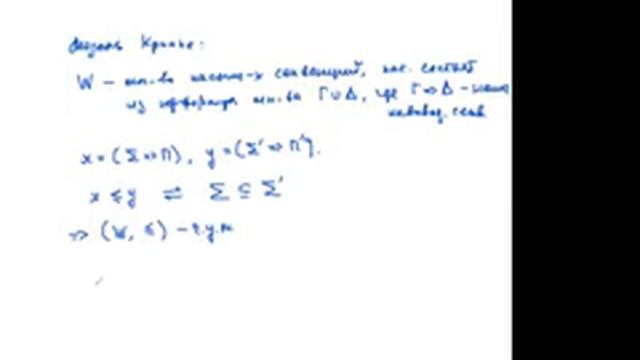 Модель Крипке:
W – мн-во насыщ-х секвенций, кот. состоят
из формул мн-ва Γ∪Δ, где Γ⇒Δ –
секв.
x = (Σ⇒Π), y = (Σ'⇒Π').
x ≤ y ⇌ Σ ⊆ Σ'
⇒ (W, ≤) – ч.у.м